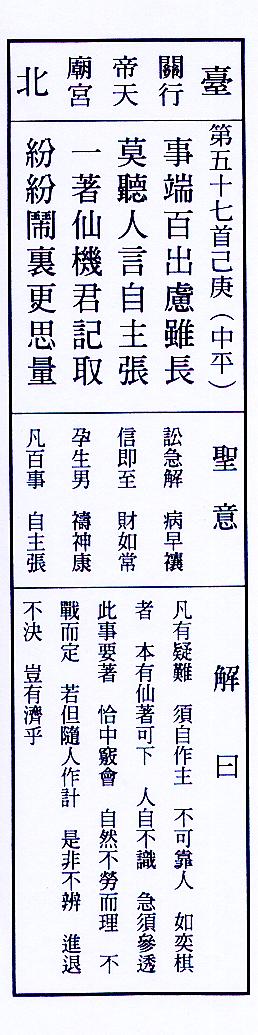 臺北
關帝廟
行天宮
第五十七首己庚（中平）
事端百出慮雖長
莫聽人言自主張
一著仙機君記取
紛紛鬧裏更思量
聖意
訟急解　病早禳
信即至　財如常
孕生男　禱神康
凡百事　自主張
解曰
凡有疑難　須自作主　不可靠人　如奕棋
者　本有仙著可下　人自不識　急須參透
此事要著　恰中竅會　自然不勞而理　不
戰而定　若但隨人作計　是非不辨　進退
不決　豈有濟乎